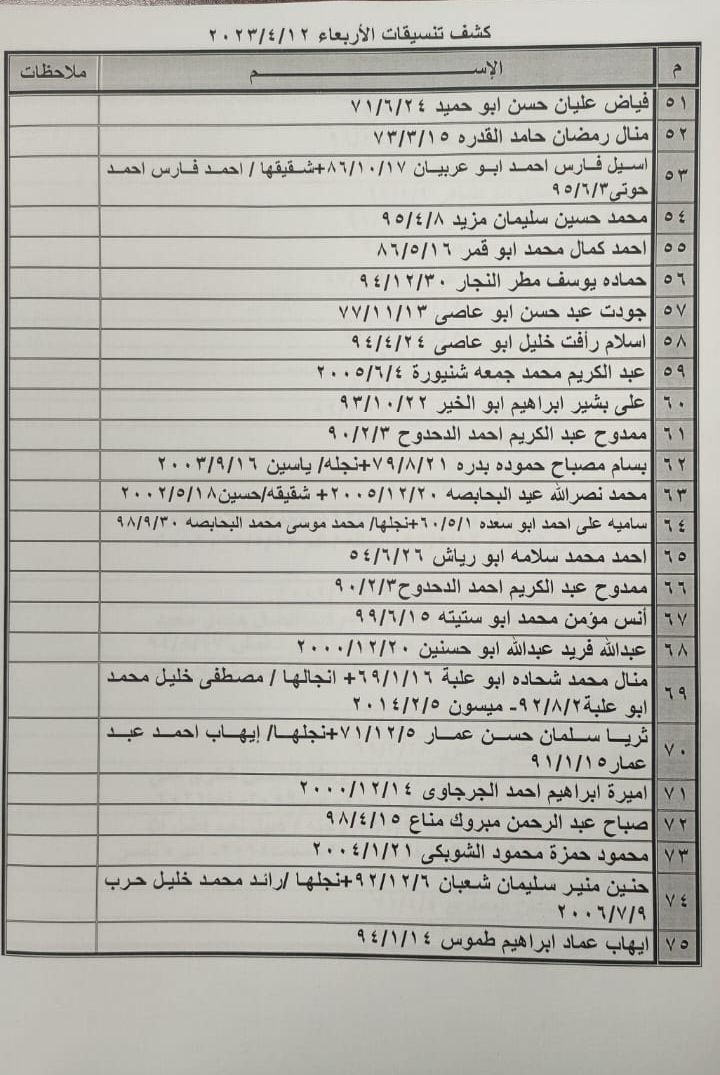 كشف تنسيقات الأربعاء ٢٠٢٣/٤/١٢
م الإســـــــــم ملاحظات
٥١ فياض عليان حسن ابو حميد ٧١/٦/٢٤
٥٢ منال رمضان حامد القدره ٧٣/٣/١٥
٥٣ اسيل فارس احمد ابو عربيان ٨٦/١٠/١٧+شقيقها / احمد فارس احمد
حوتى٩٥/٦/٣
٥٤ محمد حسين سليمان مزيد ٩٥/٤/٨
٥٥ احمد كمال محمد ابو قمر ٨٦/٥/١٦
٥٦ حماده يوسف مطر النجار ٩٤/١٢/٣٠
٥٧ جودت عبد حسن ابو عاصى ٧٧/١١/١٣
٥٨ اسلام رأفت خليل ابو عاصى ٩٤/٤/٢٤
٥٩ عبد الكريم محمد جمعه شنيورة ٢٠٠٥/٦/٤
٦٠ على بشير ابراهيم ابو الخير ٩٣/١٠/٢٢
٦١ ممدوح عبد الكريم احمد الدحدوح ٩٠/٢/٣
٦٢ بسام مصباح حموده بدره ٧٩/٨/٢١+نجله/ ياسين ٢٠٠٣/٩/١٦
٦٣ محمد نصرالله عيد البحابصه ٢٠٠٥/١٢/٢٠+ شقيقه/حسين٢٠٠٢/٥/١٨
٦٤ ساميه على احمد ابو سعده ٦٠/٥/١+نجلها/ محمد موسى محمد البحابصه ٩٨/٩/٣٠
٦٥ احمد محمد سلامه ابو رياش ٥٤/٦/٢٦
٦٦ ممدوح عبد الكريم احمد الدحدوح٩٠/٢/٣
٦٧ أنس مؤمن محمد ابو ستيته ٩٩/٦/١٥
٦٨ عبدالله فريد عبدالله ابو حسنين ٢٠٠٠/١٢/٢٠
٦٩ منال محمد شحاده ابو علبة ٦٩/١/١٦+ انجالها / مصطفى خليل محمد
ابو علبة٩٢/٨/٢- ميسون ٢٠١٤/٢/٥
٧٠ ثريا سلمان حسن عمار ٧١/١٢/٥+نجلها/ إيهاب احمد عبد
عمار٩١/١/١٥
٧١ اميرة ابراهيم احمد الجرجاوى ٢٠٠٠/١٢/١٤
٧٢ صباح عبد الرحمن مبروك مناع ٩٨/٤/١٥
٧٣ محمود حمزة محمود الشوبكى ٢٠٠٤/١/٢١
٧٤ حنين منير سليمان شعبان ٩٢/١٢/٦+نجلها /رائد محمد خليل حرب
٢٠٠٦/٧/٩
٧٥ ايهاب عماد ابراهيم طموس ٩٤/١/١٤